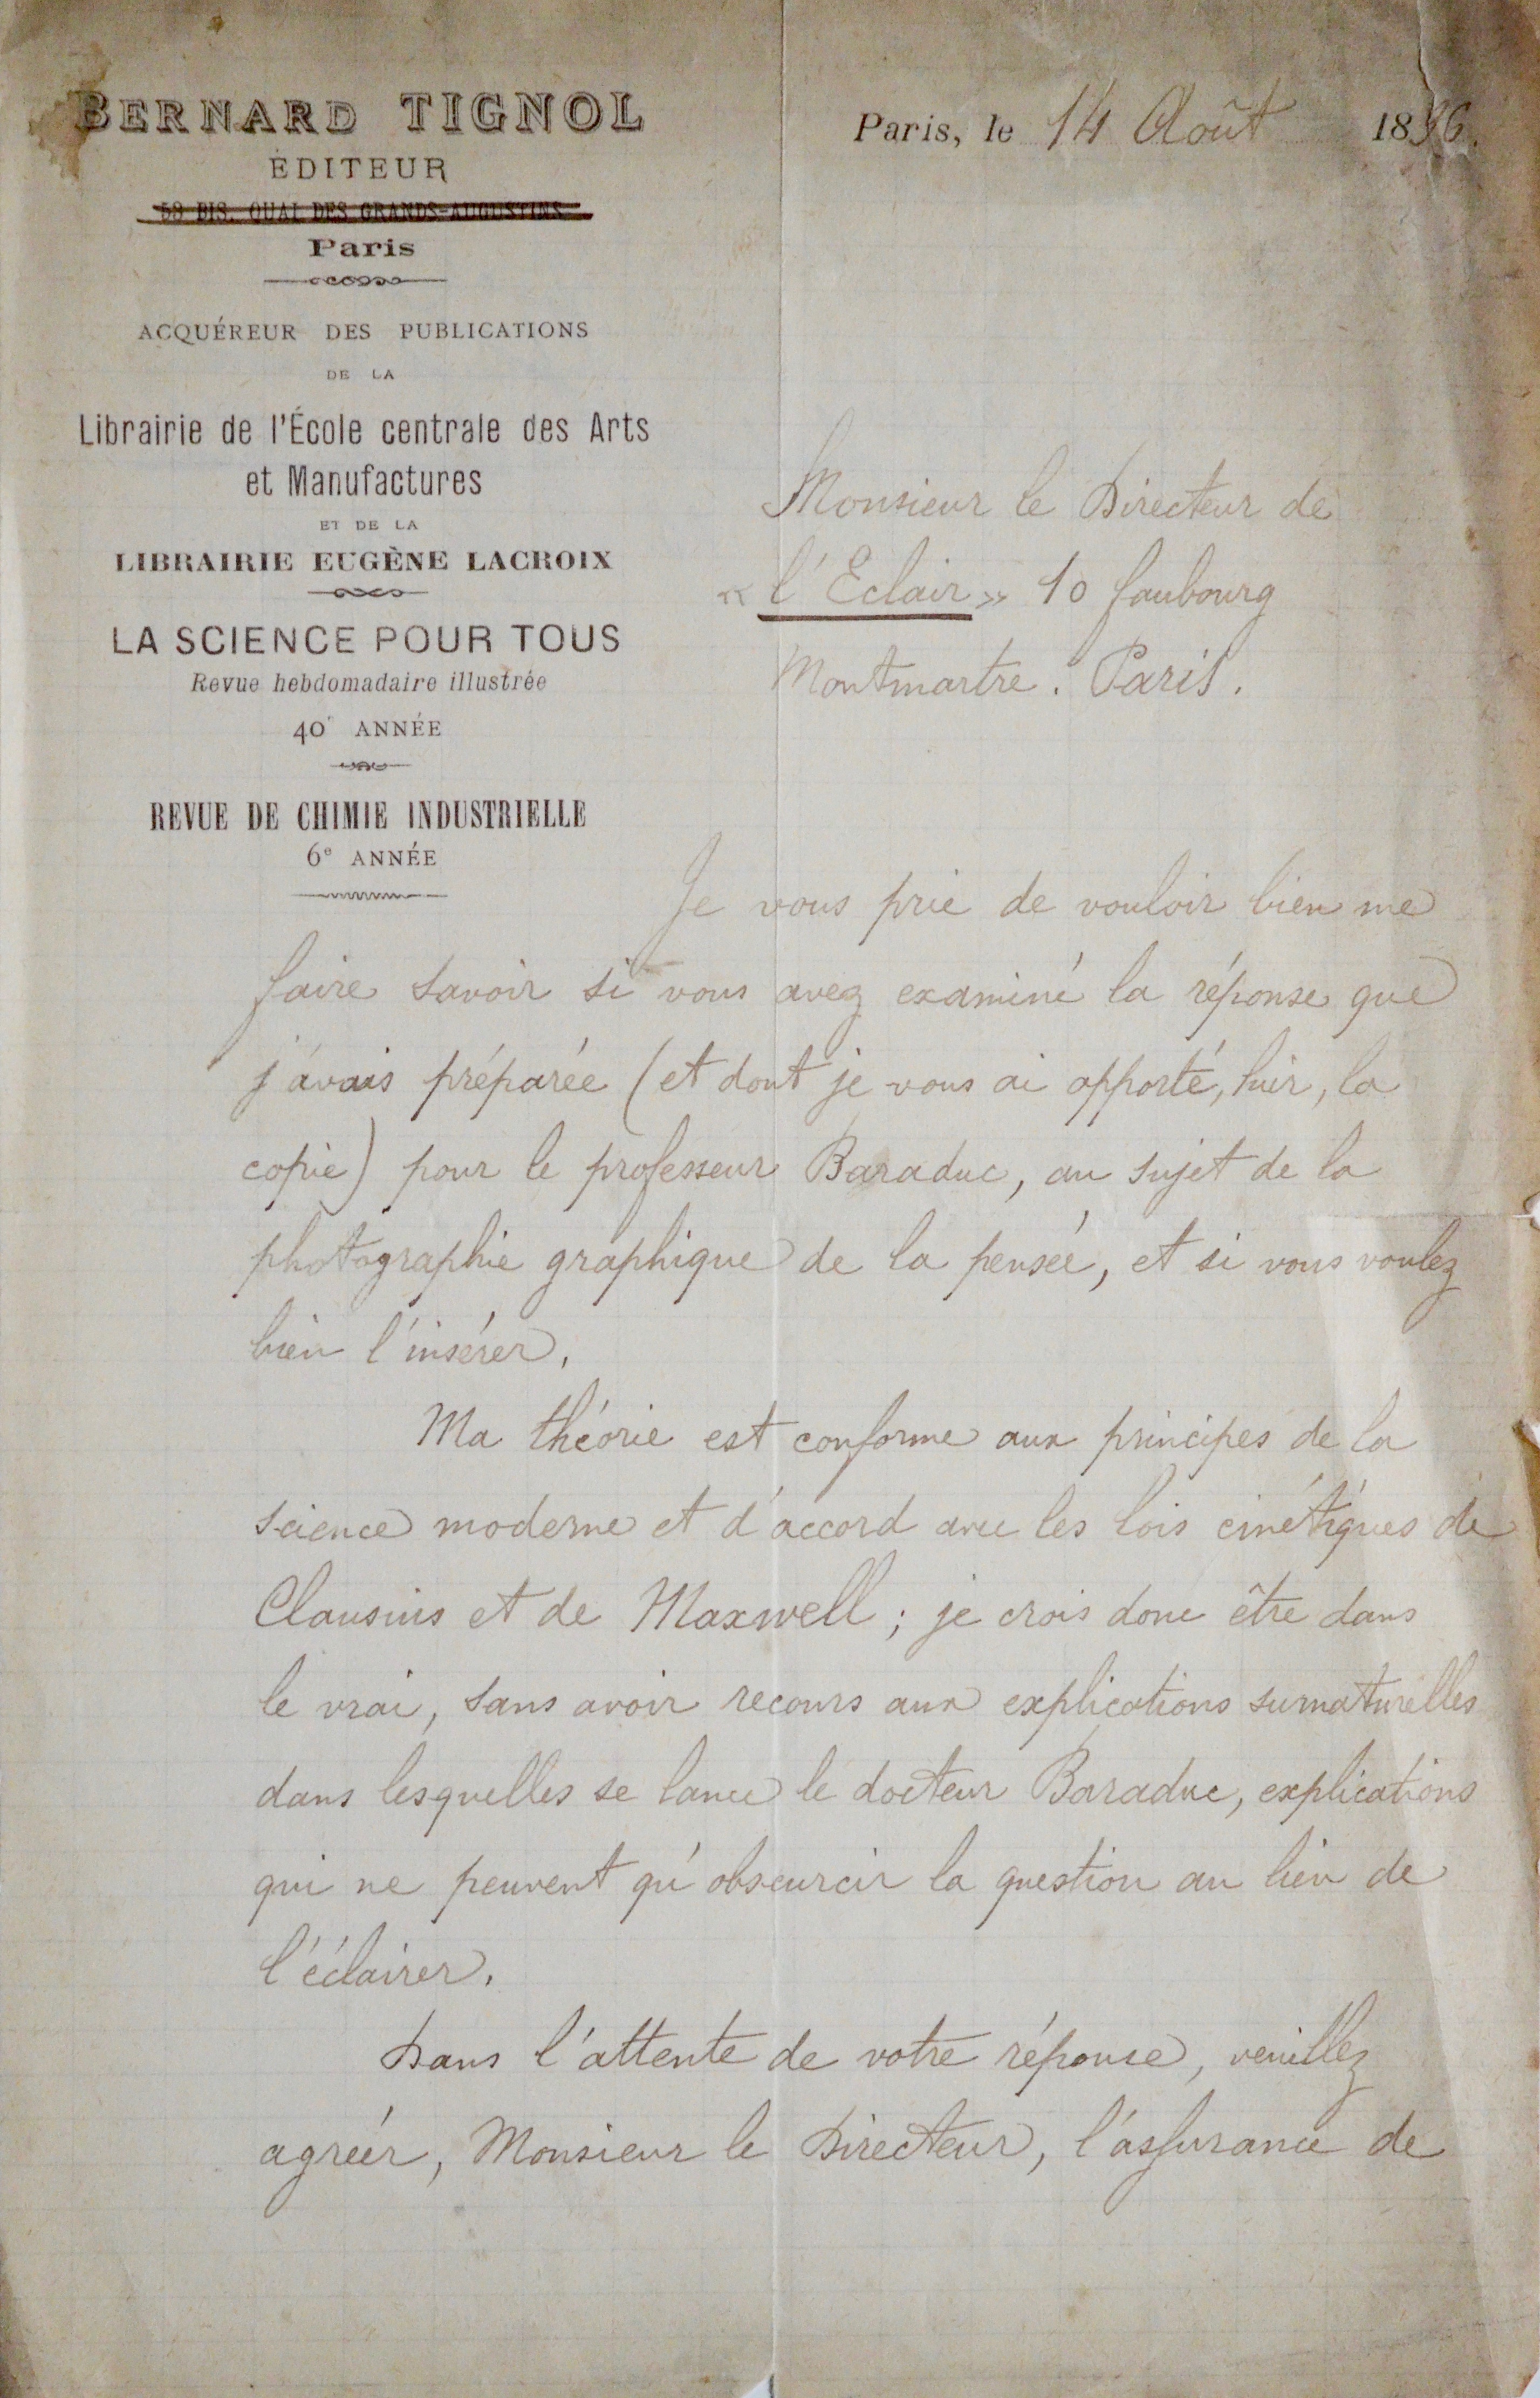 BERNARD TIGNOL
ÉDITEUR
53 BIS, QUAI DES GRANDS-AUGUSTINS
Paris
ACQUÉREUR DES PUBLICATIONS
DE LA
Librairie de l'École centrale des Arts
et Manufactures
ET DE LA
LIBRAIRIE EUGÈNE LACROIX
LA SCIENCE POUR TOUS
Revue hebdomadaire illustrée
40e ANNÉE
REVUE DE CHIMIE INDUSTRIELLE
6e ANNÉE
Paris, le 14 Août 1896.
Monsieur le Directeur de
« l'Eclair » 10 faubourg
Montmartre. Paris.
Je vous prie de vouloir bien me
faire savoir si vous avez examiné la réponse que
j'avais préparée (et dont je vous ai apporté, hier, la
copie) pour le professeur Baraduc, au sujet de la
photographie graphique de la pensée, et si vous voulez
bien l'insérer.
Ma théorie est conforme aux principes de la
science moderne et d'accord avec les lois cinétiques de
Clausius et de Maxwell ; je crois donc être dans
le vrai, sans avoir recours aux explications surnaturelles
dans lesquelles se lance le docteur Baraduc, explications
qui ne peuvent qu'obscurcir la question au lieu de
l'éclairer.
Dans l'attente de votre réponse, veuillez
agréer, Monsieur le Directeur, l'assurance de